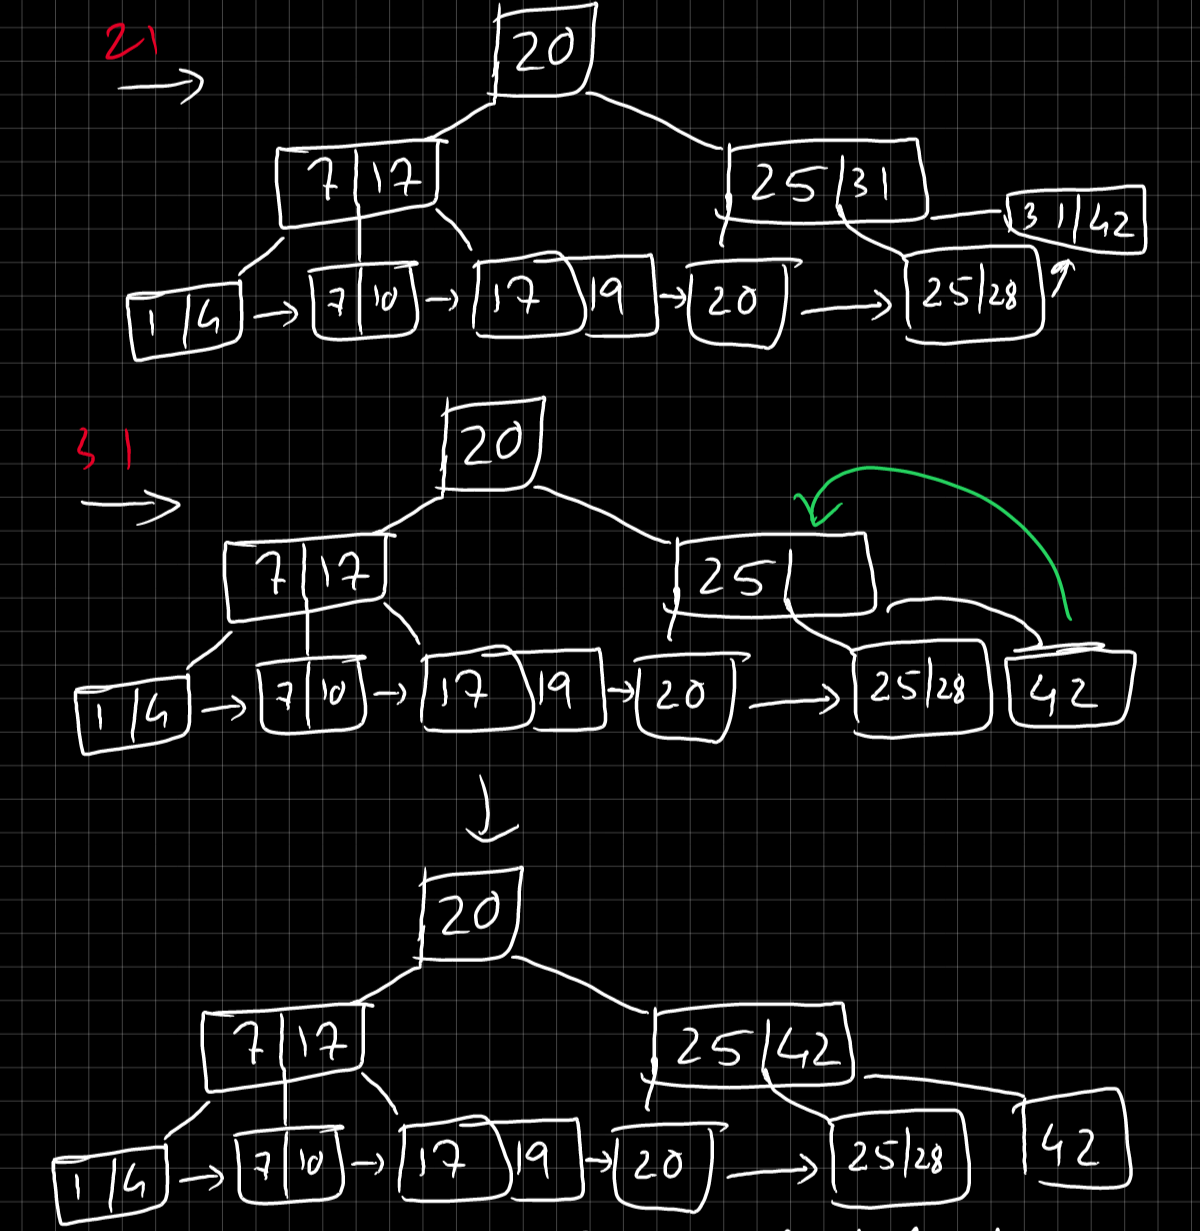 21
20
7 | 17 25 | 31
31 | 42
1 | 4 → 7 | 10 → 17 | 19 → 20 → 25 | 28
31
20
7 | 17 25 |
1 | 4 → 7 | 10 → 17 | 19 → 20 → 25 | 28 42
20
7 | 17 25 | 42
1 | 4 → 7 | 10 → 17 | 19 → 20 → 25 | 28 42